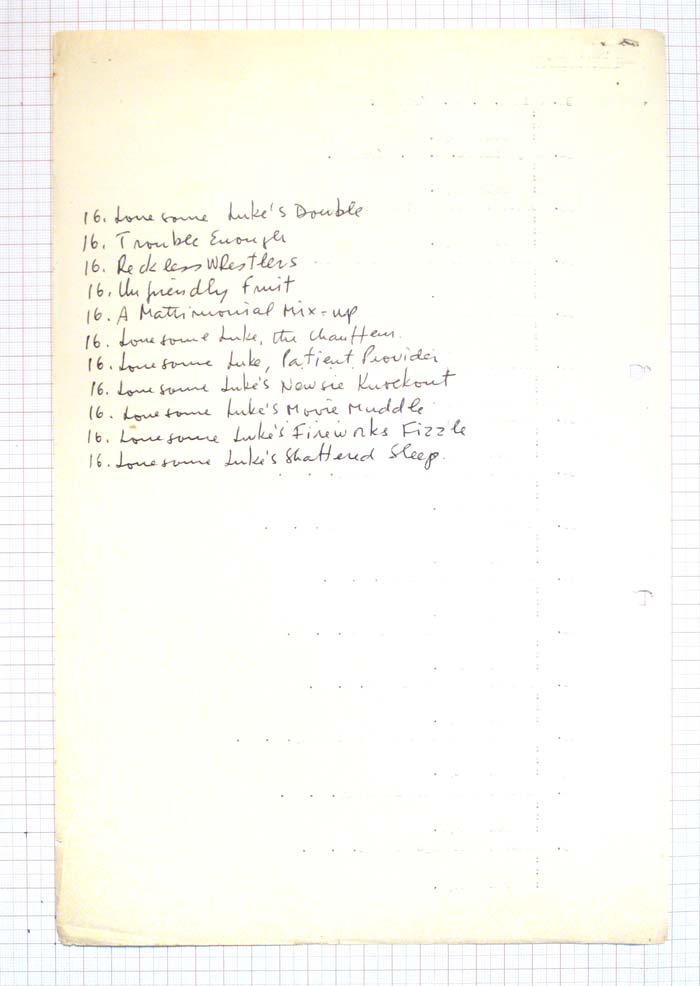 16. Lonesome Luke's Double
16. Trouble Enough
16. Reckless Wrestlers
16. Unfriendly Fruit
16. A Matrimonial Mix-up
16. Lonesome Luke, the Chauffeur.
16. Lonesome Luke, Patient Provider
16. Lonesome Luke's Newsie Knockout
16. Lonesome Luke's Movie Muddle
16. Lonesome Luke's Fireworks Fizzle
16. Lonesome Luke's Shattered Sleep.